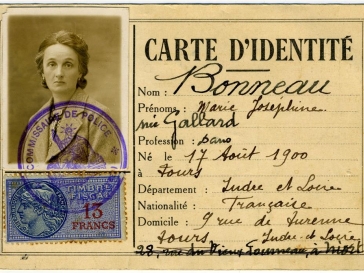 CARTE D'IDENTITÉ
Nom : Bonneau
Prénoms : Marie Joséphine
née Gallard
Profession : sans
Né le 17 Août 1900
à Tours
Département : Indre et Loire
Nationalité : Française
Domicile : 9 rue de
Tours Indre et Loire
28, rue du Vieux
COMMISSAIRE DE POLICE
TIMBRE FISCAL
13 FRANCS